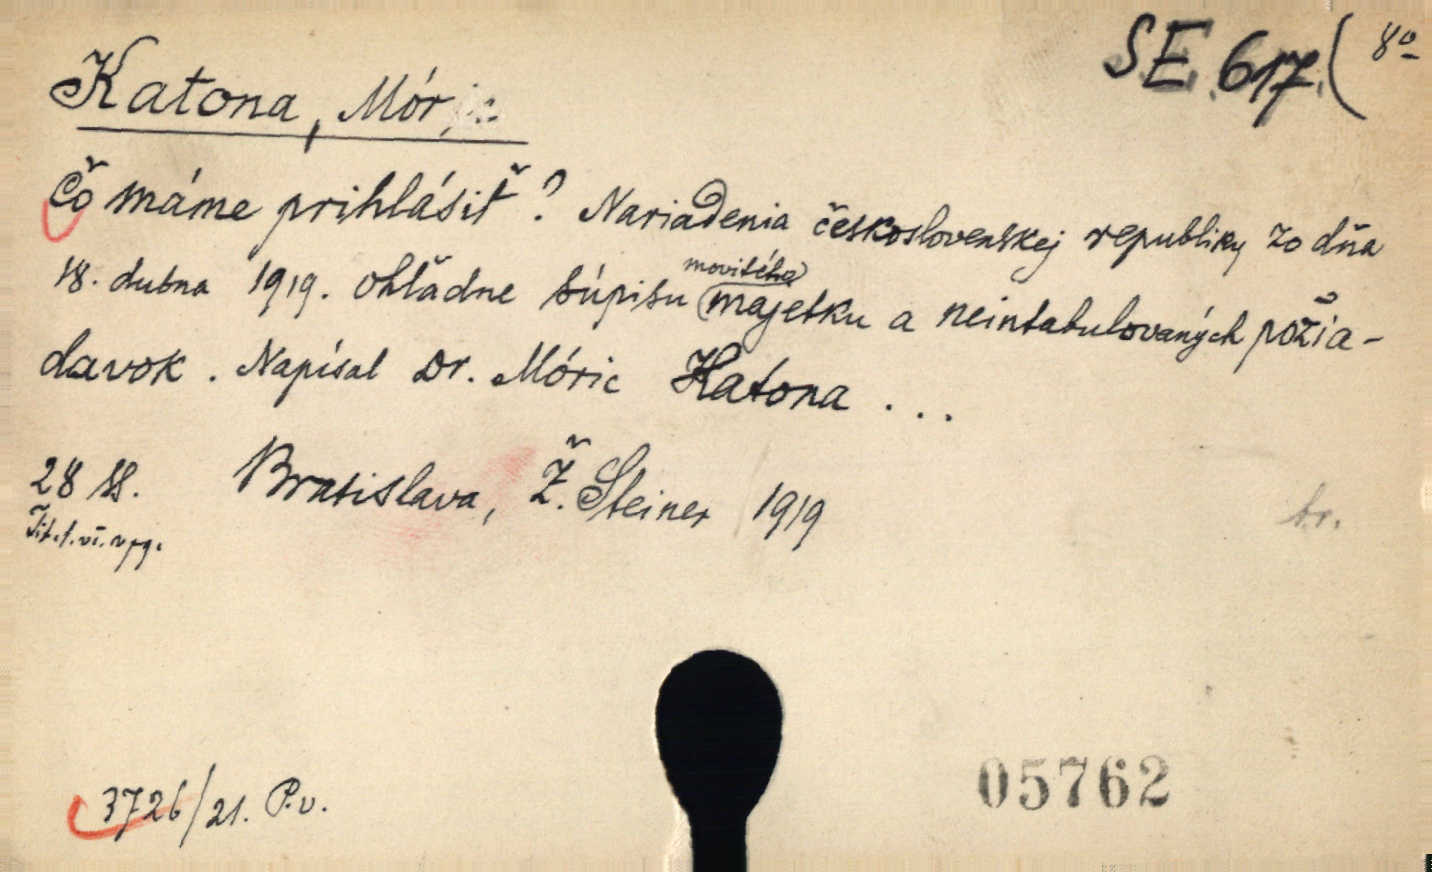 SE 617 ( 8º
Katona, Mór
Čo máme prihlásiť? Nariadenia československej republiky zo dňa
18. dubna 1919. ohľadne súpisu (majetku a neintabulovaných požia-
movitého)
davok. Napísal Dr. Móric Katona ...
28 s. Bratislava, Ž. Steiner 1919
br.
Tit. l. vi. v pg.
3726/21. P.v.
05762